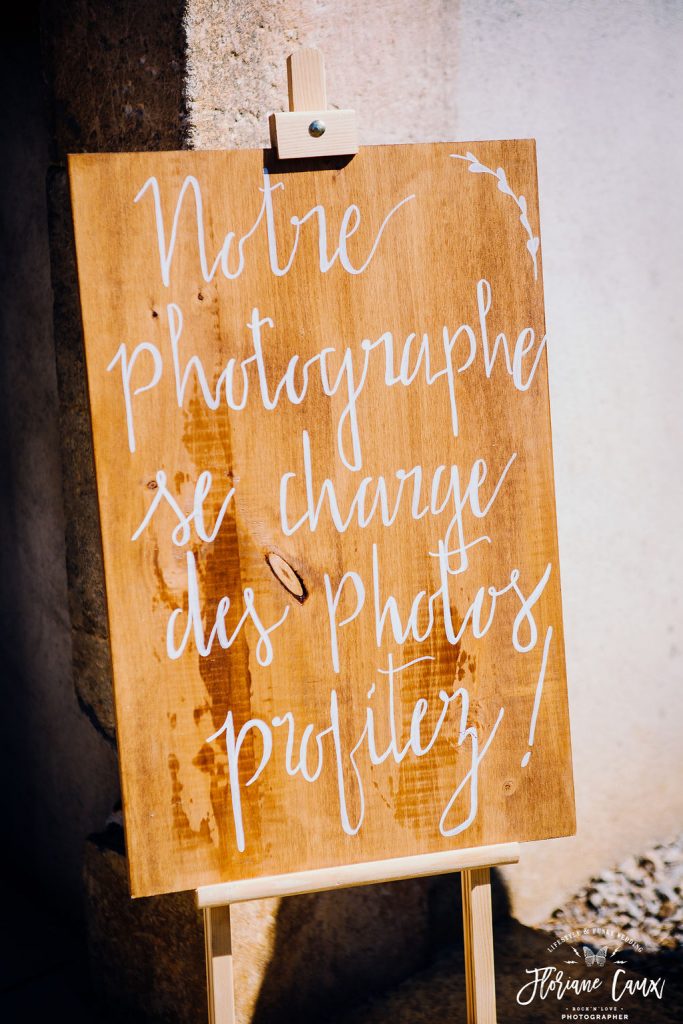 Notre
photographe
se charge
des photos
profitez !
LIFESTYLE & FUNKY WEDDING
Floriane Caux
ROCK'N'LOVE
PHOTOGRAPHER